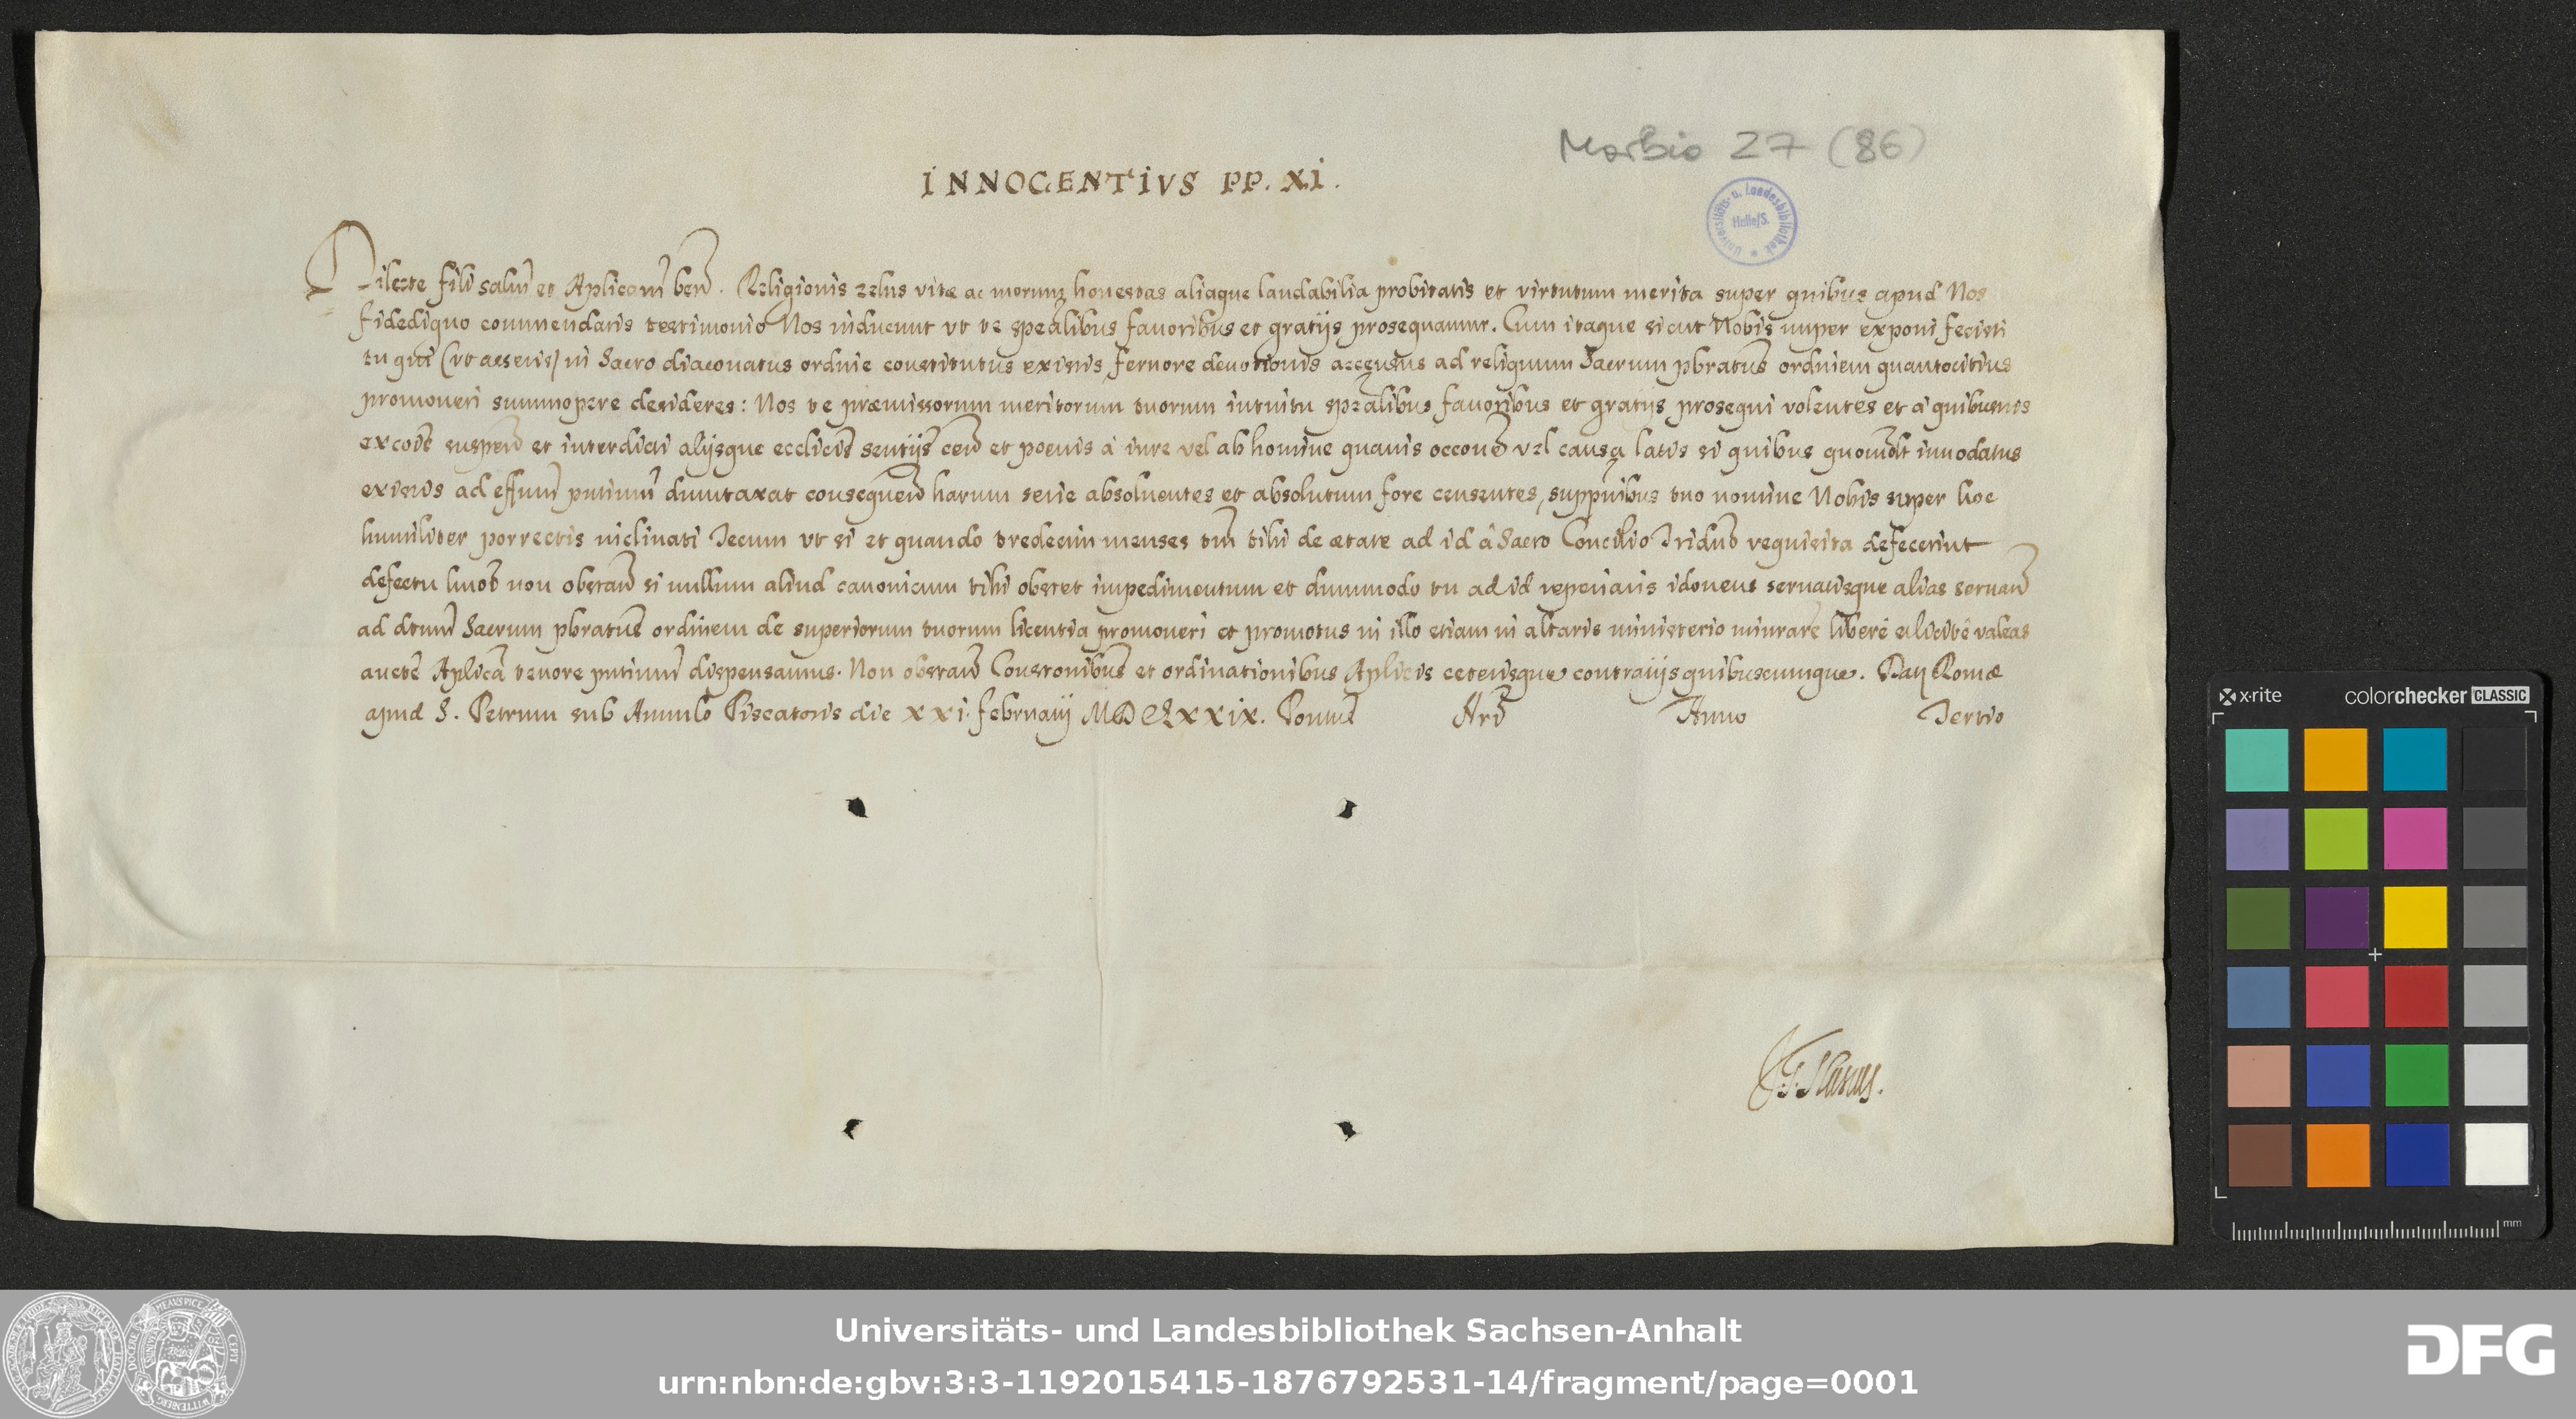 Morbio 27 (86)
INNOCENTIVS PP. XI.
Universitäts- u. Landesbibliothek Halle/S.
Dilecte fili salm̃ et Aplicam̃ ben̄. Religionis zelus vitæ ac morum honestas aliaque laudabilia probitatis et virtutum merita super quibus apud Nos
fidedigno commendaris testimonio Nos inducunt vt te spealibus fauoribus et gratijs prosequamur. Cum itaque sicut Nobis nuper exponi fecisti
tu qui (vt asseris) in Sacro diaconatus ordine constitutus existis feruore deuotionis accensus ad reliquum Sacrum pbratus ordinem quantocitius
promoueri summopere desideres: Nos te præmissorum meritorum tuorum intuitu spealibus fauoribus et gratijs prosequi volentes et à quibusuis
excōis suspen̄ et interdicti alijsque ecclicis sentijs cen̄ et poenis à iure vel ab homine quauis occone vel causa latis si quibus quomolt innodatus
existis ad effum̄ pntium̄ dumtaxat consequen̄ harum serie absoluentes et absolutum fore censentes, suppnibus tuo nomine Nobis super hoc
humiliter porrectis inclinati Tecum vt si et quando tredecim menses tm̄ tibi de ætate ad id à Sacro Concilio Tridno requisita defecerint
defectu hmōi non obstan̄ si nullum aliud canonicum tibi obstet impedimentum et dummodo tu ad id reperiaris idoneus seruatisque alias seruan̄
ad dtum̄ Sacrum pbratus ordinem de superiorum tuorum licentia promoueri et promotus in illo etiam in altaris ministerio minrare liberè et licitè valeas
aucte Aplica tenore pntium̄ dispensamus. Non obstan̄ Constonibus et ordinationibus Aplicis ceterisque contrarijs quibuscumque. Dat̃ Romæ
apud S. Petrum sub Annulo Piscatoris die XXI. februarij MDCLXXIX. Pontus Nri Anno Tertio
x-rite colorchecker CLASSIC
mm
Universitäts- und Landesbibliothek Sachsen-Anhalt
urn:nbn:de:gbv:3:3-1192015415-1876792531-14/fragment/page=0001
DFG